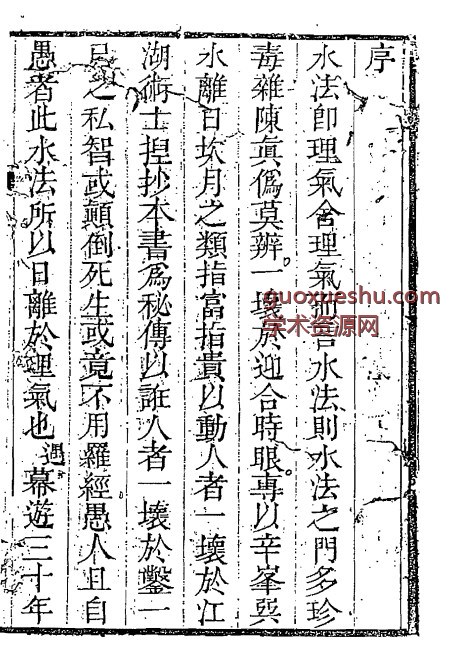 序
水法卽理氣舍理氣而言水法則水法之門多珍
毒雜陳眞僞莫辨。一壞於迎合時眼。專以辛峯巽
水離日坎月之類指富指貴以動人者一壞於江
湖術士捏抄本書爲秘傳以誑人者一壞於鑿一
己之私智或顛倒死生或竟不用羅經愚人且自
愚者此水法所以日離於理氣也遇幕遊三十年
guoxueshu.com
学术资源网